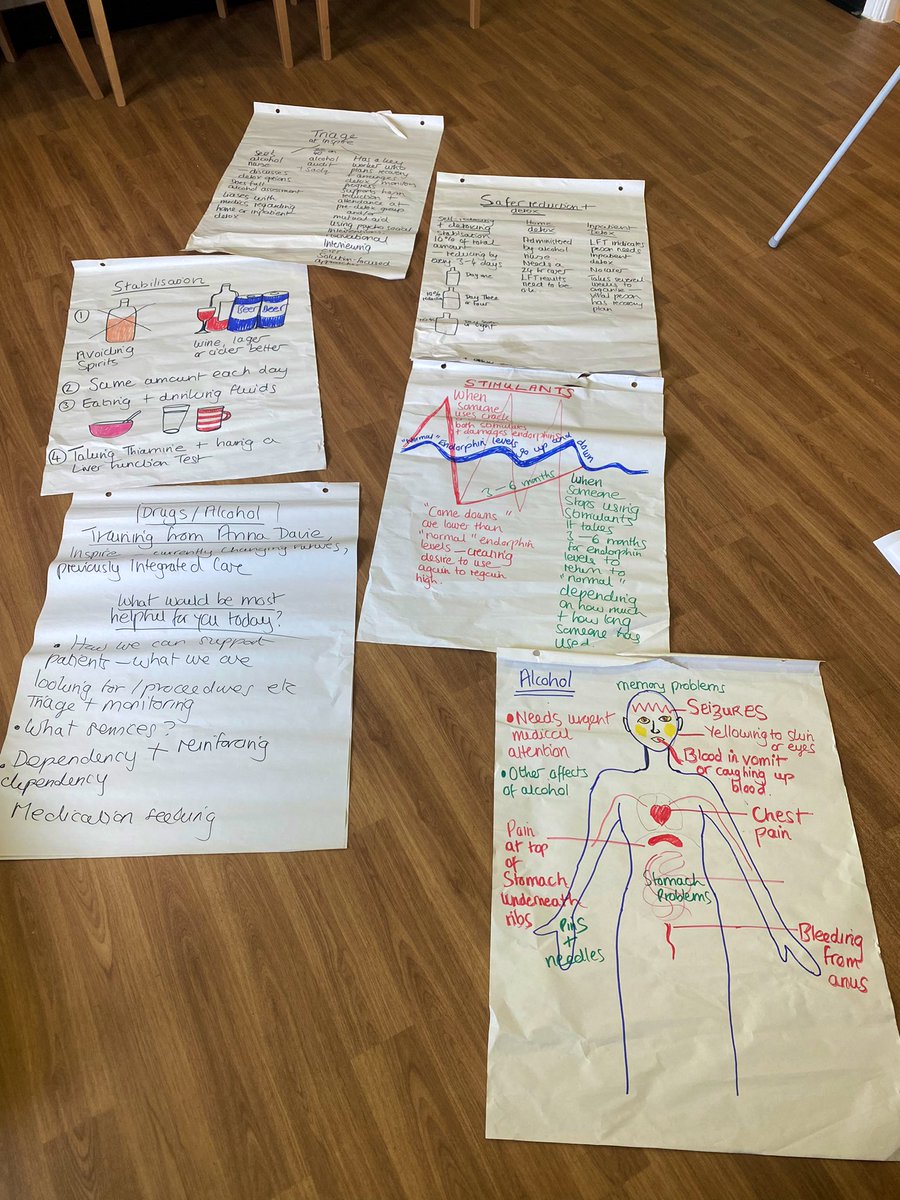 Triage
at Inspire
See
alcohol
nurse
discusses
detox options
Does full
alcohol assessment
liases with
medics regarding
home or inpatient
detox
alcohol
audit
Has a key
worker who
plans recovery
arranges
detox monitors
progress
Supports harm
reduction +
attendance at
pre detox group
and/or
mutual aid
using psycho social
Motivational
Interviewing
Solution-focused
Safer reduction +
detox
+ detoxing
Stabilisation
10% of total
amount
reducing by
every 3-4 days
Day one
10%
Day Three
or four
Home
detox
Administered
by alcohol
nurse
Needs a
24 hr carer
LFT results
need to be
o.k.
Inpatient
Detox
LFT indicates
person needs
Inpatient
detox
No carer
Takes several
weeks to
organise -
vital person
has recovery
plan
Stabilisation
①
Avoiding
Spirits
Beer Beer
Wine, lager
or cider better
② Same amount each day
③ Eating + drinking fluids
④ Taking Thiamine + having a
Liver Function Test
STIMULANTS
When
someone
uses crack
both stimulates
+ damages endorphins
"Normal" Endorphin levels go up and down
3-6 months
"Come downs"
are lower than
"normal" endorphin
levels - creating
desire to use
again to regain
high.
When
someone
stops using
stimulants
it takes
3-6 months
for endorphin
levels to
return to
"normal"
depending
on how much
+ how long
someone has
used.
Drugs/Alcohol
Training from Anna Davie,
Inspire currently changing names,
previously Integrated Care
What would be most
helpful for you today?
• How we can support
patients - what we are
looking for / proceedures etc
Triage + monitoring
• What services?
• Dependency + reinforcing
dependency
Medication seeking
Alcohol
• Needs urgent
medical
attention
• Other affects
of alcohol
memory problems
SEIZURES
Yellowing to skin
or eyes
Blood in vomit
or coughing up
blood.
Chest
pain
Pain
at top
of
Stomach
underneath
ribs
Stomach
Problems
Pins
+
needles
Bleeding
from
anus